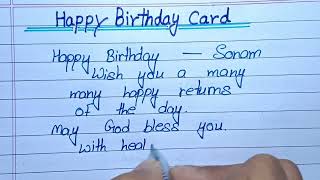 Happy Birthday Card
Happy Birthday — Sonam
Wish you a many
many happy returns
of the day.
May God bless you.
with heal